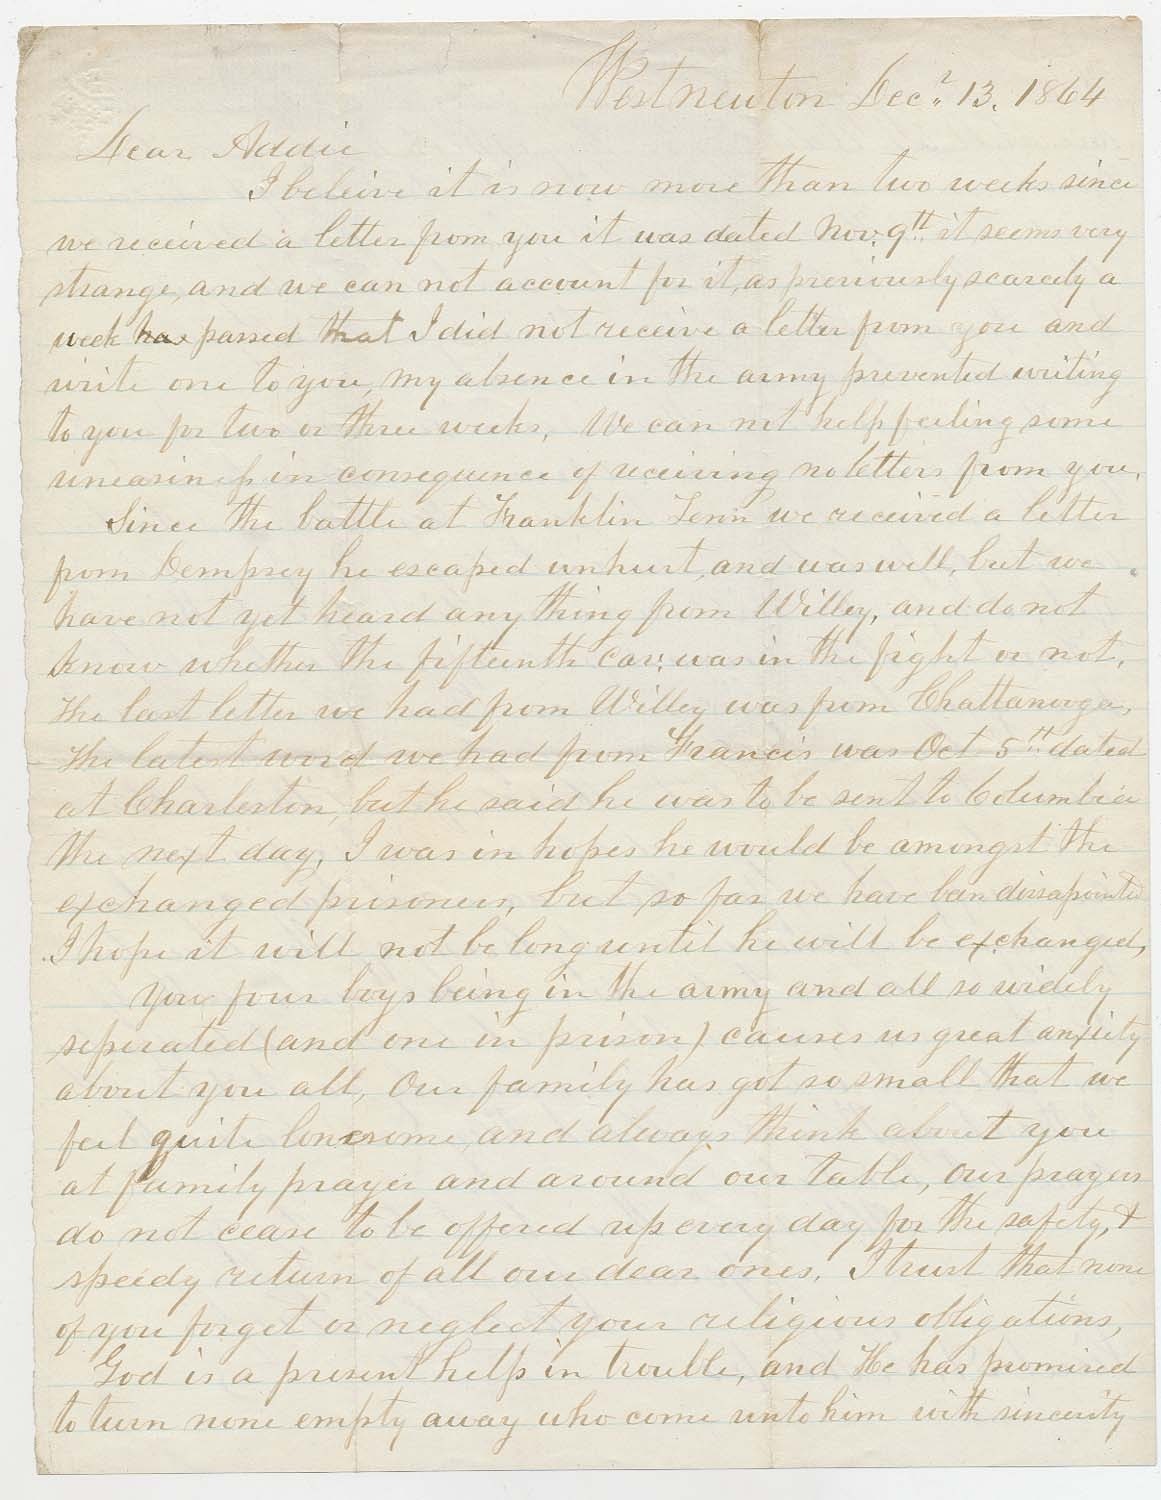 Westnewton Decr. 13. 1864
Dear Addie
I beleive it is now more than two weeks since
we received a letter from you it was dated Nov. 9th it seems very
strange, and we can not account for it, as previously scarcely a
week has passed that I did not receive a letter from you and
write one to you, my absence in the army prevented writing
to you for two or three weeks, We can not help feeling some
uneasiness in consequence of receiving no letters from you.
Since the battle at Franklin Tenn we received a letter
from Dempsey he escaped unhurt, and was well, but we
have not yet heard any thing from Willey, and do not
know whether the fifteenth Cav. was in the fight or not,
The last letter we had from Willey was from Chattanooga,
The latest word we had from Francis was Oct 5th dated
at Charleston, but he said he was to be sent to Columbia
the next day, I was in hopes he would be amongst the
exchanged prisoners, but so far we have ben dissapointed
I hope it will not be long until he will be exchanged,
You four boys being in the army and all so widely
seperated (and one in prison) causes us great anxiety
about you all, Our family has got so small that we
feel quite lonesome, and always think about you
at family prayer and around our table, Our prayers
do not cease to be offered up every day for the safety, &
speedy return of all our dear ones, I trust that none
of you forget or neglect your religious obligations,
God is a present help in trouble, and He has promised
to turn none empty away who come unto him with sincerity